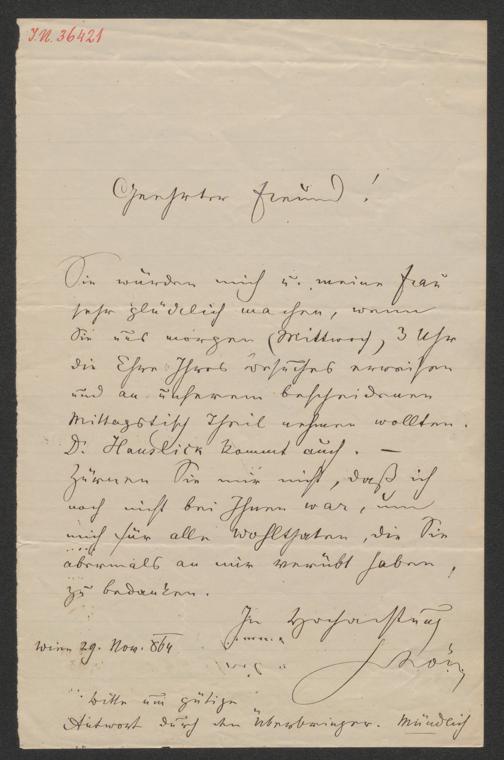 I.N. 36421
Geehrter Freund!
Sie würden mich u. meine Frau
sehr glücklich machen, wenn
Sie uns morgen (Mittwoch) 3 Uhr
die Ehre Ihres Besuches erweisen
und an unserem bescheidenen
Mittagstisch Theil nehmen wollten.
Dr Hanslick kommt auch. —
Zürnen Sie mir nicht, daß ich
noch nicht bei Ihnen war, um
mich für alle Wohlthaten, die Sie
abermals an mir verübt haben,
zu bedanken.
In Hochachtung
Wien 29. Nov. 864
Bitte um gütige
Antwort durch den Überbringer. Mündlich